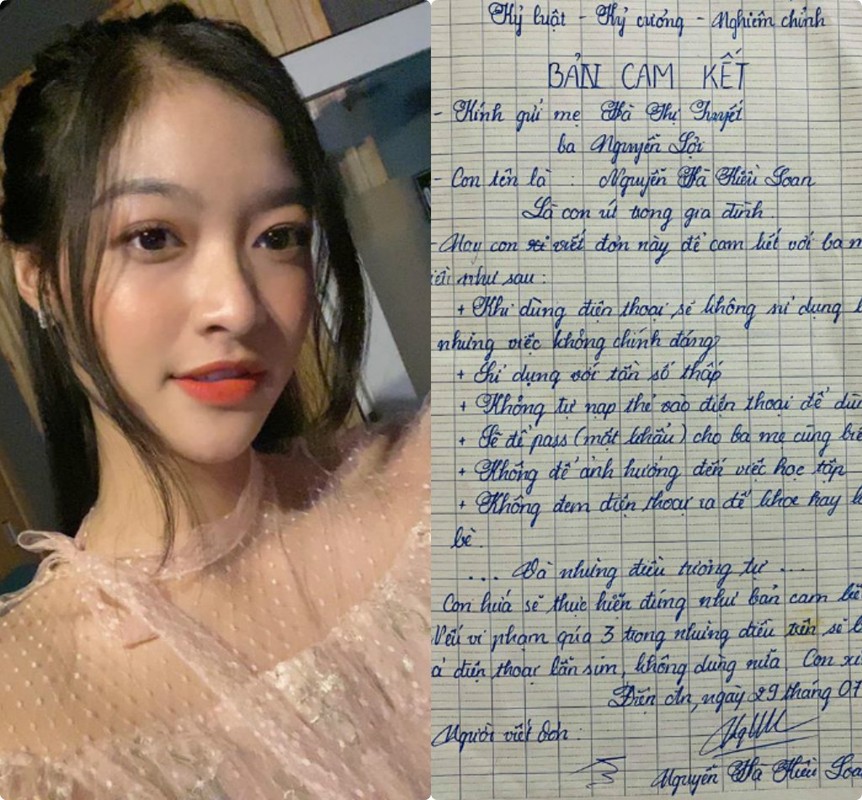 Kỷ luật - Kỷ cương - Nghiêm chỉnh
BẢN CAM KẾT
- Kính gửi mẹ Hà Thị Tuyết
ba Nguyễn Lợi
- Con tên là : Nguyễn Hà Kiều Loan
Là con út trong gia đình.
- Nay con viết đơn này để cam kết với ba m
như sau :
+ Khi dùng điện thoại sẽ không sử dụng
những việc không chính đáng
+ Sử dụng với tần số thấp
+ Không tự nạp thẻ vào điện thoại để dùn
+ Sẽ để pass (mật khẩu) cho ba mẹ cùng biế
+ Không để ảnh hưởng đến việc học tập
+ Không đem điện thoại ra để khoe hay b
bè.
... Và những điều tương tự ...
Con hứa sẽ thực hiện đúng như bản cam kế
Nếu vi phạm quá 3 trong những điều trên sẽ
ả điện thoại lẫn sim, không dùng nữa. Con xi
Điện An, ngày 29 tháng 07
Người viết đơn :
Nguyễn Hà Kiều Loa